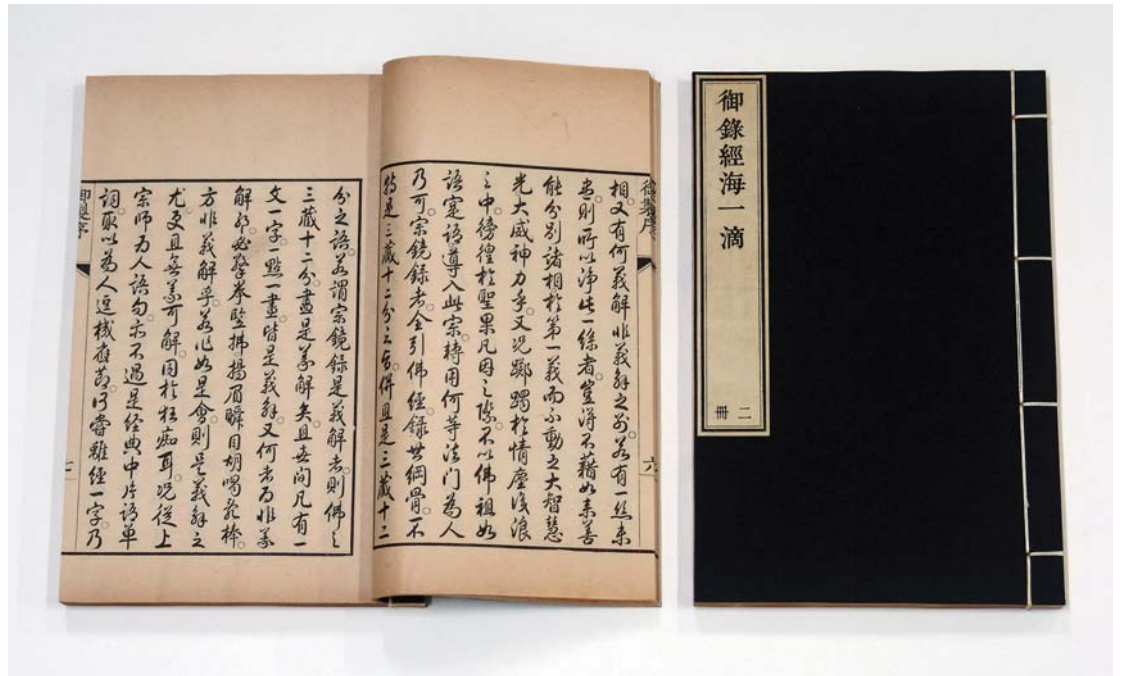 御製序
六
相。又有何義解非義解之別。若有一絲未
盡。則所以淨此一絲者。豈得不藉如来善
能分別諸相於第一義而不動之大智慧
光大威神力乎。又况躑躅於情塵浅浪
之中。徬徨於聖果凡因之際。不以佛祖如
語寔語導入此宗。轉用何等法門為人
乃可。宗鏡錄者。全引佛經錄其綱骨。不
特是三藏十二分之旨。併且是三藏十二
分之語。若謂宗鏡錄是義解者。則佛之
三藏十二分。盡是義解矣。且世间凡有一
文一字。一點一畫。皆是義解。又何者为非義
解耶。必擎拳竪拂揚眉瞬目胡喝亂棒。
方非義解乎。若作如是會。則是義解之
尤。更且無義可解。同於狂痴耳。况從上
宗師为人語句。亦不過是经典中片語單
詞。取以為人逗機應節。何嘗離經一字。乃
御製序
七
御錄經海一滴
二冊